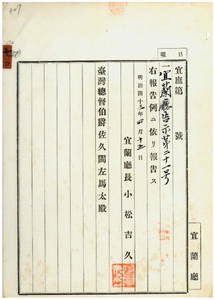 宜庶第　　號
一宜蘭廳告示第二十一号
右報告例ニ依リ報告ス
明治四十三年四月十五日
宜蘭廳長小松吉久
臺灣總督伯爵佐久間左馬太殿
宜蘭廳